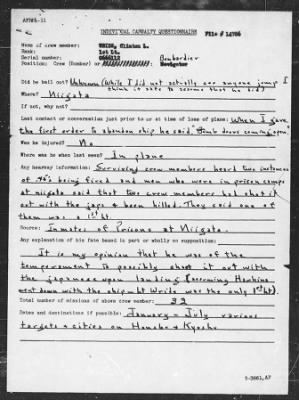 AFPPA-11
INDIVIDUAL CASUALTY QUESTIONNAIRE File # 14786
Name of crew member: Clinton L.
Rank: 1st Lt.
Serial number:
Position: Crew (Bomber) or Bombardier Navigator
Did he bail out? Unknown (While I did not actually see anyone jump I
think it safe to assume that he did)
Where? Niigata
If not, why not?
Last contact or conversation just prior to or at time of loss of plane: When I gave
the first order to abandon ship he said "bomb doors coming open"
Was he injured? No
Where was he when last seen? In plane
Any hearsay information: Surviving crew members heard two instances
of 45's being fired and men who were in prison camps
at niigata said that two crew members had shot it
out with the japs + been killed. They said one of
them was a 1st Lt.
Source: Inmates of Prisons at Niigata.
Any explanation of his fate based in part or wholly on supposition:
It is my opinion that he was of the
temperament to possibly shoot it out with
the japanese upon landing (assuming Hawkins
went down with the ship - Lt Wride was the only 1st Lt).
Total number of missions of above crew member: 32
Dates and destinations if possible: January - July various
targets + cities on Honshu + Kyushu
5-3861,AF